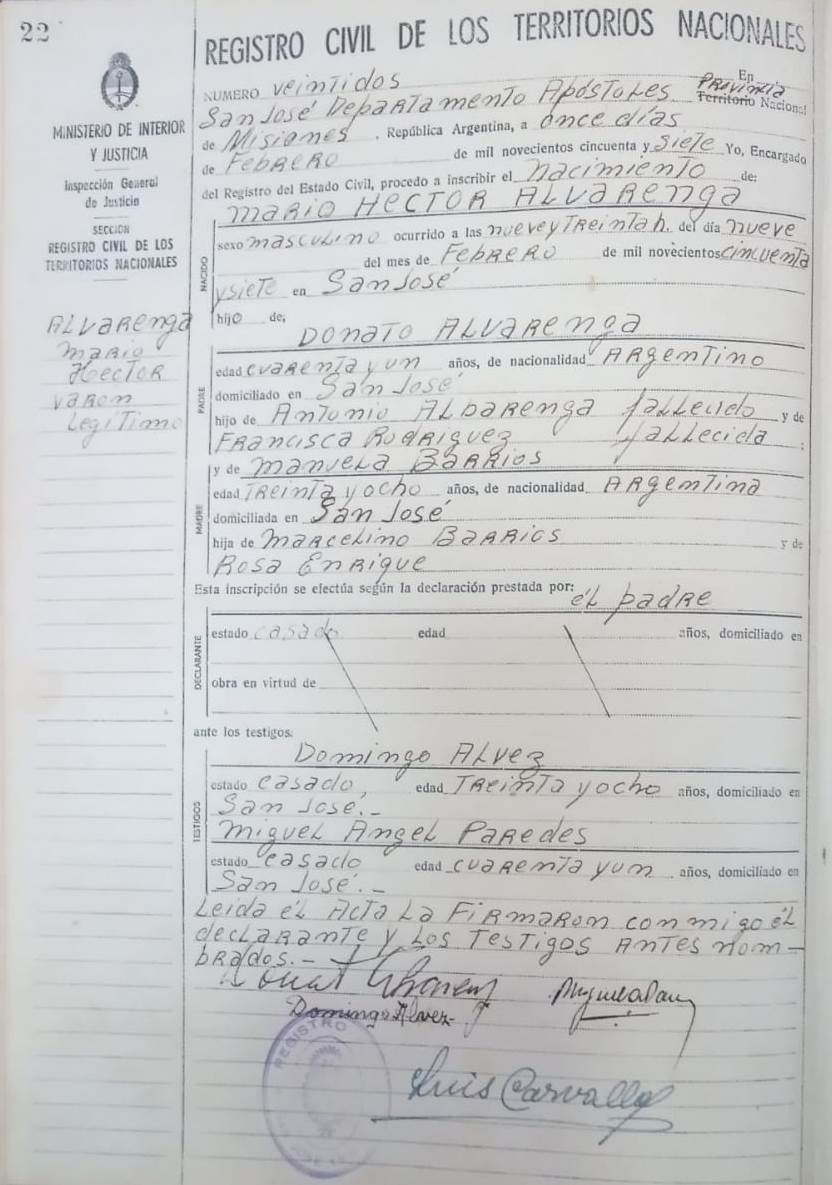 22
REGISTRO CIVIL DE LOS TERRITORIOS NACIONALES
MINISTERIO DE INTERIOR
Y JUSTICIA
Inspección General
de Justicia
SECCION
REGISTRO CIVIL DE LOS
TERRITORIOS NACIONALES
ALVARENGA
MARIO
HECTOR
VARON
LegiTimo
NUMERO veinTidos En
San José DepARTamenTo ApósToles Provincia Territorio Nacional
de Misiones . República Argentina, a once días
de FebReRo de mil novecientos cincuenta y SieTe Yo, Encargado
del Registro del Estado Civil, procedo a inscribir el nacimienTo de:
NACIDO
MARIO HECTOR ALVARENGA
sexo masculino ocurrido a las nueve y TReinTa h. del día nueve
del mes de FebReRo de mil novecientos cincuenTa
y sieTe en San José
hijo de;
PADRE
DONATO ALVARENGA
edad cuaRenTa y un años, de nacionalidad ARgenTino
domiciliado en San José
hijo de AnTonio ALbaRenga faLLecido y de
FRancisca RodRiguez faLLecida ;
MADRE
y de manueLa BaRRios
edad TReinTa y ocho años, de nacionalidad ARgenTina
domiciliada en San José
hija de maRceLino BaRRios y de
Rosa EnRique
Esta inscripción se efectúa según la declaración prestada por: éL padRe
DECLARANTE
estado casado edad años, domiciliado en
obra en virtud de
ante los testigos:
TESTIGOS
Domingo ALvez
estado casado, edad TReinTa y ocho años, domiciliado en
San José.-
MigueL AngeL PaRedes
estado casado edad cuaRenTa y un años, domiciliado en
San José.-
Leida éL AcTa La FiRmaRon conmigo éL
decLaRanTe y Los TesTigos AnTes nom-
bRados.-
Domingo Alvez
REGISTRO
Luis Carvallo